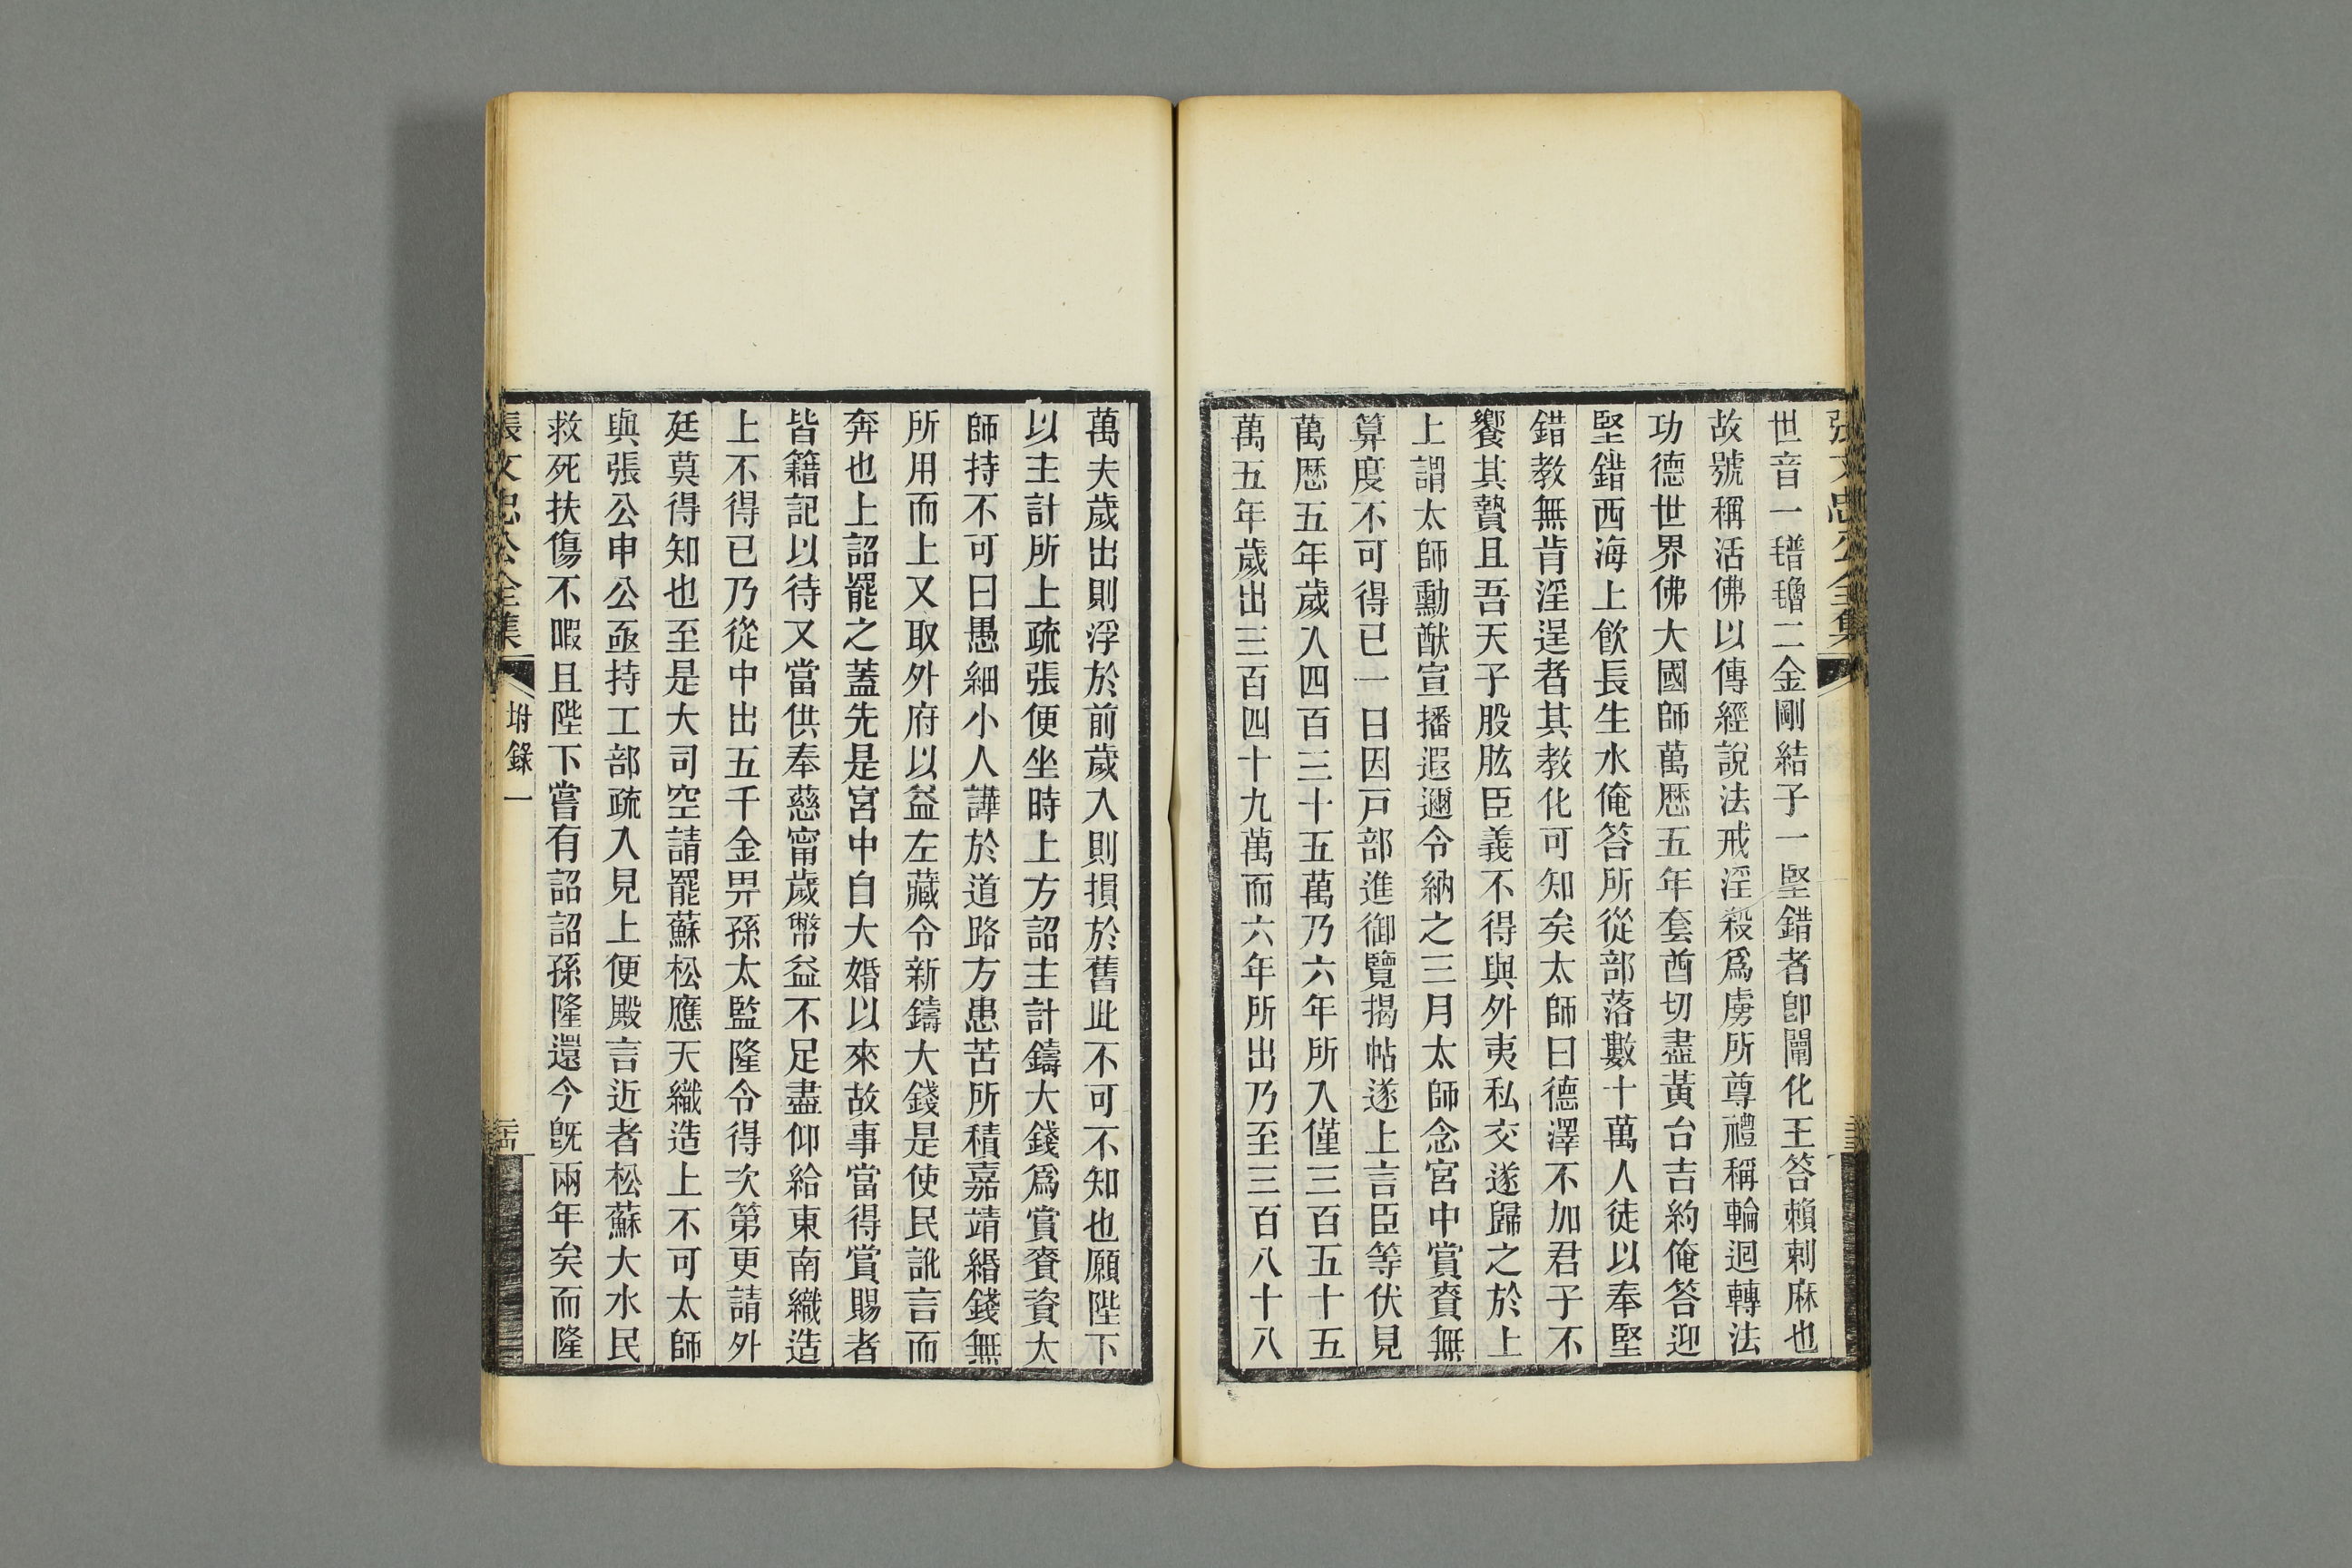 張文忠公全集
世音一氆氌二金剛結子一堅錯者卽闡化王答賴剌麻也
故號稱活佛以傳經說法戒淫殺爲虜所尊禮稱輪迴轉法
功德世界佛大國師萬歷五年套酋切盡黃台吉約俺答迎
堅錯西海上飮長生水俺答所從部落數十萬人徒以奉堅
錯教無肯淫逞者其教化可知矣太師曰德澤不加君子不
饗其贄且吾天子股肱臣義不得與外夷私交遂歸之於上
上謂太師勳猷宣播遐邇令納之三月太師念宮中賞賚無
算度不可得已一日因戸部進御覽揭帖遂上言臣等伏見
萬歷五年歲入四百三十五萬乃六年所入僅三百五十五
萬五年歲出三百四十九萬而六年所出乃至三百八十八
萬夫歲出則浮於前歲入則損於舊此不可不知也願陛下
以主計所上疏張便坐時上方詔主計鑄大錢爲賞賚資太
師持不可曰愚細小人譁於道路方患苦所積嘉靖緡錢無
所用而上又取外府以益左藏令新鑄大錢是使民訛言而
奔也上詔罷之蓋先是宮中自大婚以來故事當得賞賜者
皆籍記以待又當供奉慈甯歲幣益不足盡仰給東南織造
上不得已乃從中出五千金畀孫太監隆令得次第更請外
廷莫得知也至是大司空請罷蘇松應天織造上不可太師
與張公申公亟持工部疏入見上便殿言近者松蘇大水民
救死扶傷不暇且陛下嘗有詔詔孫隆還今旣兩年矣而隆
張文忠公全集
坿錄一